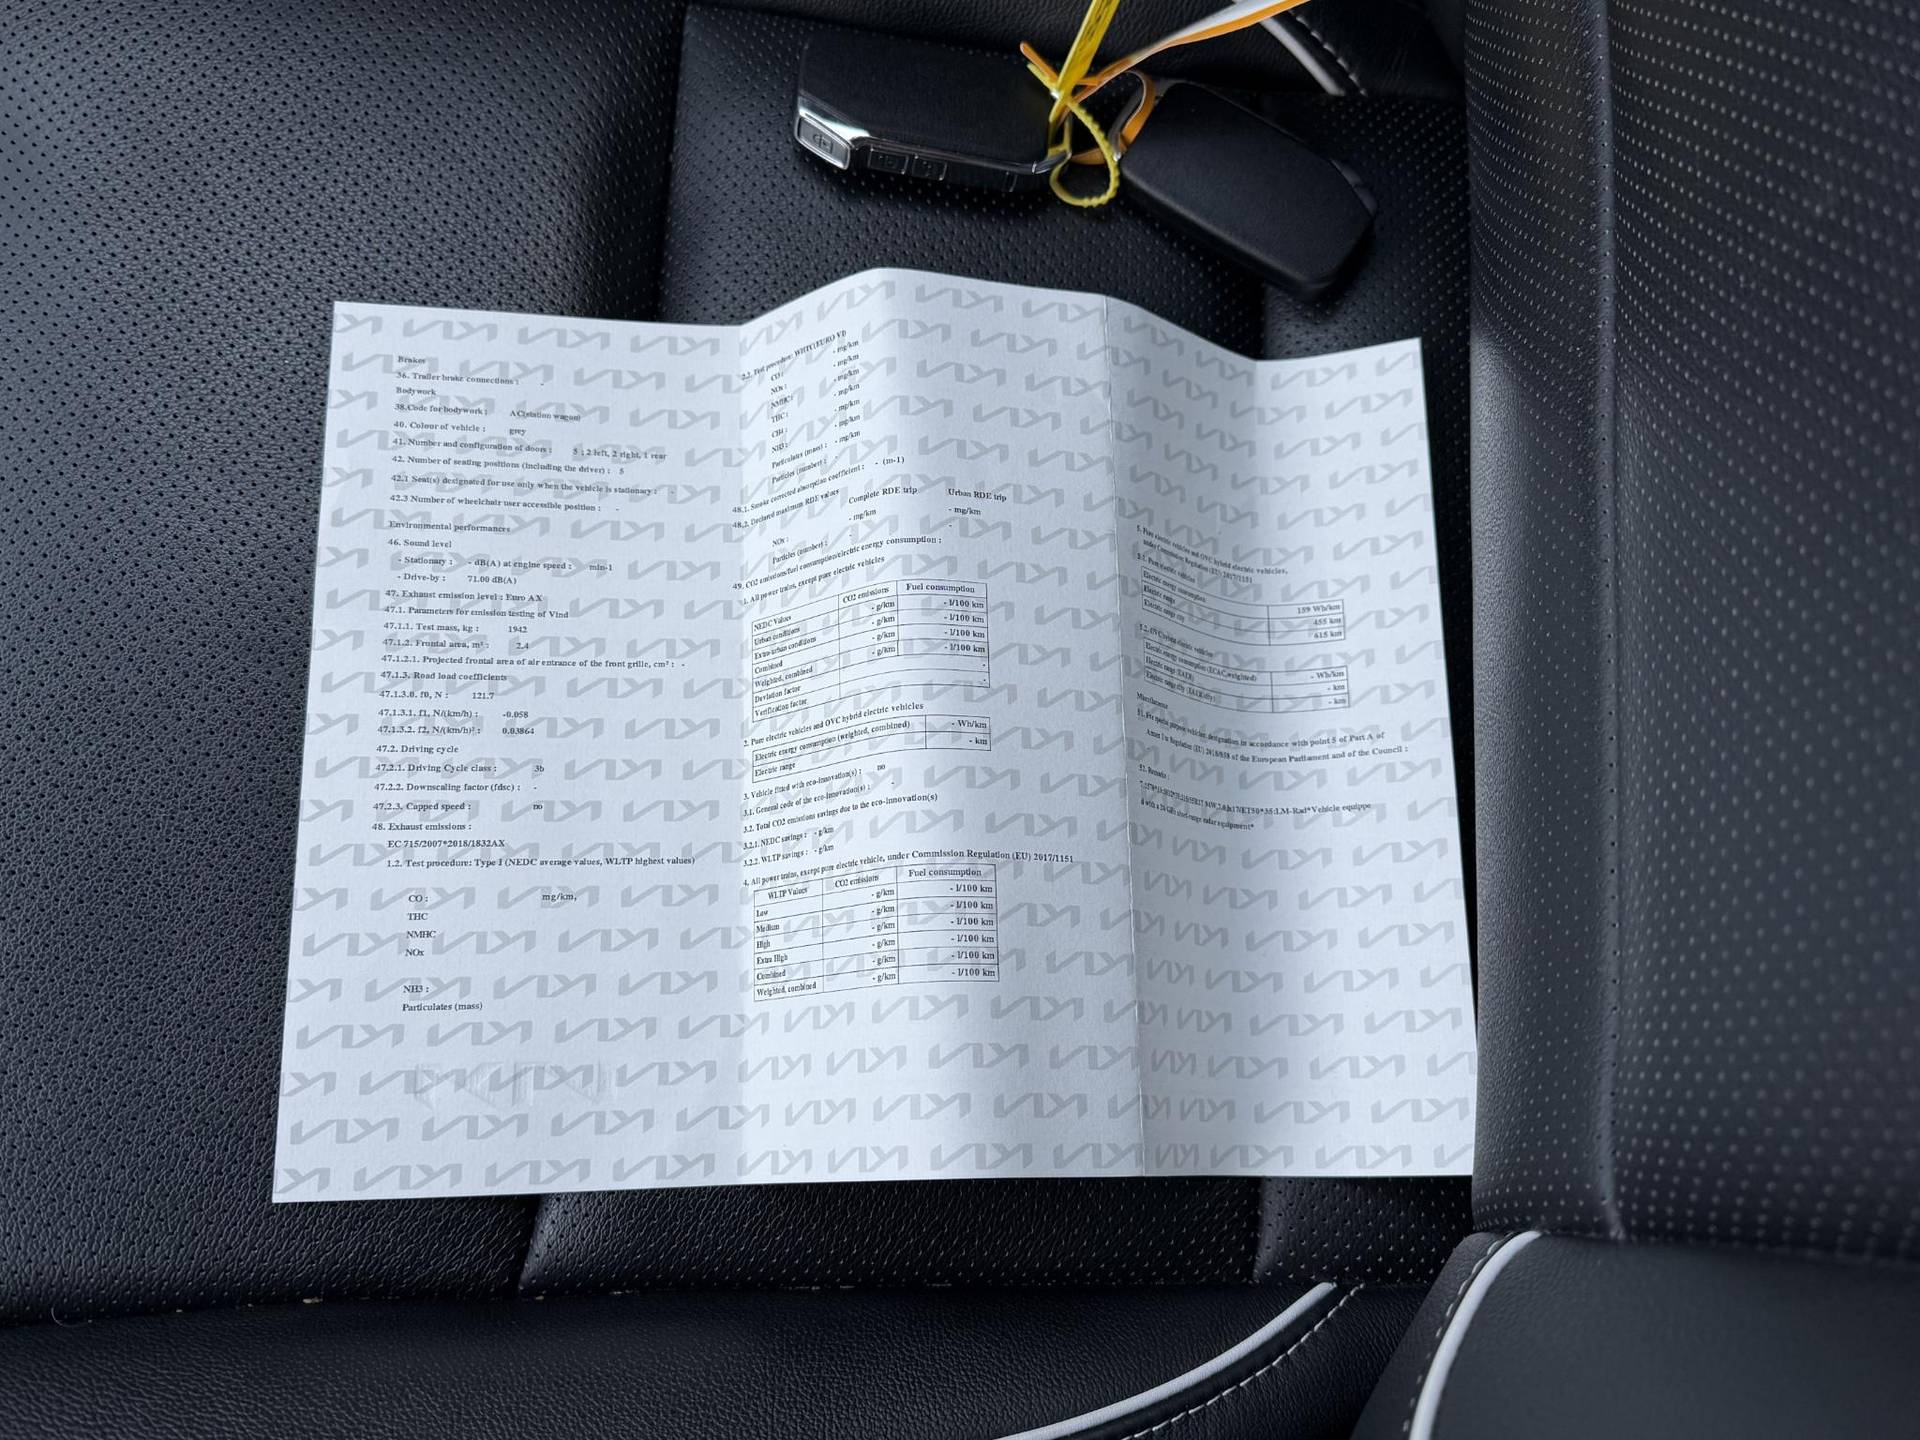 Brakes
36. Trailer brake connections : -
Bodywork
38.Code for bodywork : AC(station wagon)
40. Colour of vehicle : grey
41. Number and configuration of doors : 5 ; 2 left, 2 right, 1 rear
42. Number of seating positions (including the driver) : 5
42.1 Seat(s) designated for use only when the vehicle is stationary : -
42.3 Number of wheelchair user accessible position : -
Environmental performances
46. Sound level
- Stationary : - dB(A) at engine speed : min-1
- Drive-by : 71.00 dB(A)
47. Exhaust emission level : Euro AX
47.1. Parameters for emission testing of Vind
47.1.1. Test mass, kg : 1942
47.1.2. Frontal area, m² : 2.4
47.1.2.1. Projected frontal area of air entrance of the front grille, cm² : -
47.1.3. Road load coefficients
47.1.3.0. f0, N : 121.7
47.1.3.1. f1, N/(km/h) : -0.058
47.1.3.2. f2, N/(km/h)² : 0.03864
47.2. Driving cycle
47.2.1. Driving Cycle class : 3b
47.2.2. Downscaling factor (fdsc) : -
47.2.3. Capped speed : no
48. Exhaust emissions :
EC 715/2007*2018/1832AX
1.2. Test procedure: Type I (NEDC average values, WLTP highest values)
CO : mg/km,
THC
NMHC
NOx
NH3 :
Particulates (mass)
2.2. Test procedure: WHTC(EURO VI)
CO : - mg/km
NOx : - mg/km
NMHC : - mg/km
THC : - mg/km
CH4 : - mg/km
NH3 : - mg/km
Particulates (mass) : - mg/km
Particles (number) : -
48.1. Smoke corrected absorption coefficient : - (m-1)
48.2. Declared maximum RDE values
Complete RDE trip Urban RDE trip
NOx : - mg/km - mg/km
Particles (number) : - -
49. CO2 emissions/fuel consumption/electric energy consumption :
1. All power trains, except pure electric vehicles
NEDC Values CO2 emissions Fuel consumption
Urban conditions - g/km - l/100 km
Extra-urban conditions - g/km - l/100 km
Combined - g/km - l/100 km
Weighted, combined - g/km - l/100 km
Deviation factor -
Verification factor -
2. Pure electric vehicles and OVC hybrid electric vehicles
Electric energy consumption (weighted, combined) - Wh/km
Electric range - km
3. Vehicle fitted with eco-innovation(s) : no
3.1. General code of the eco-innovation(s) : -
3.2. Total CO2 emissions savings due to the eco-innovation(s)
3.2.1. NEDC savings : - g/km
3.2.2. WLTP savings : - g/km
4. All power trains, except pure electric vehicle, under Commission Regulation (EU) 2017/1151
WLTP Values CO2 emissions Fuel consumption
Low - g/km - l/100 km
Medium - g/km - l/100 km
High - g/km - l/100 km
Extra High - g/km - l/100 km
Combined - g/km - l/100 km
Weighted, combined - g/km - l/100 km
5. Pure electric vehicles and OVC hybrid electric vehicles,
under Commission Regulation (EU) 2017/1151
5.1. Pure electric vehicles
Electric energy consumption 159 Wh/km
Electric range 455 km
Electric range city 615 km
5.2. OVC hybrid electric vehicles
Electric energy consumption (ECAC,weighted) - Wh/km
Electric range (EAER) - km
Electric range city (EAER city) - km
Miscellaneous
51. For special purpose vehicles: designation in accordance with point 5 of Part A of
Annex I to Regulation (EU) 2018/858 of the European Parliament and of the Council :
52. Remarks :
Vehicle equippe
d with a 24 GHz short-range radar equipment*